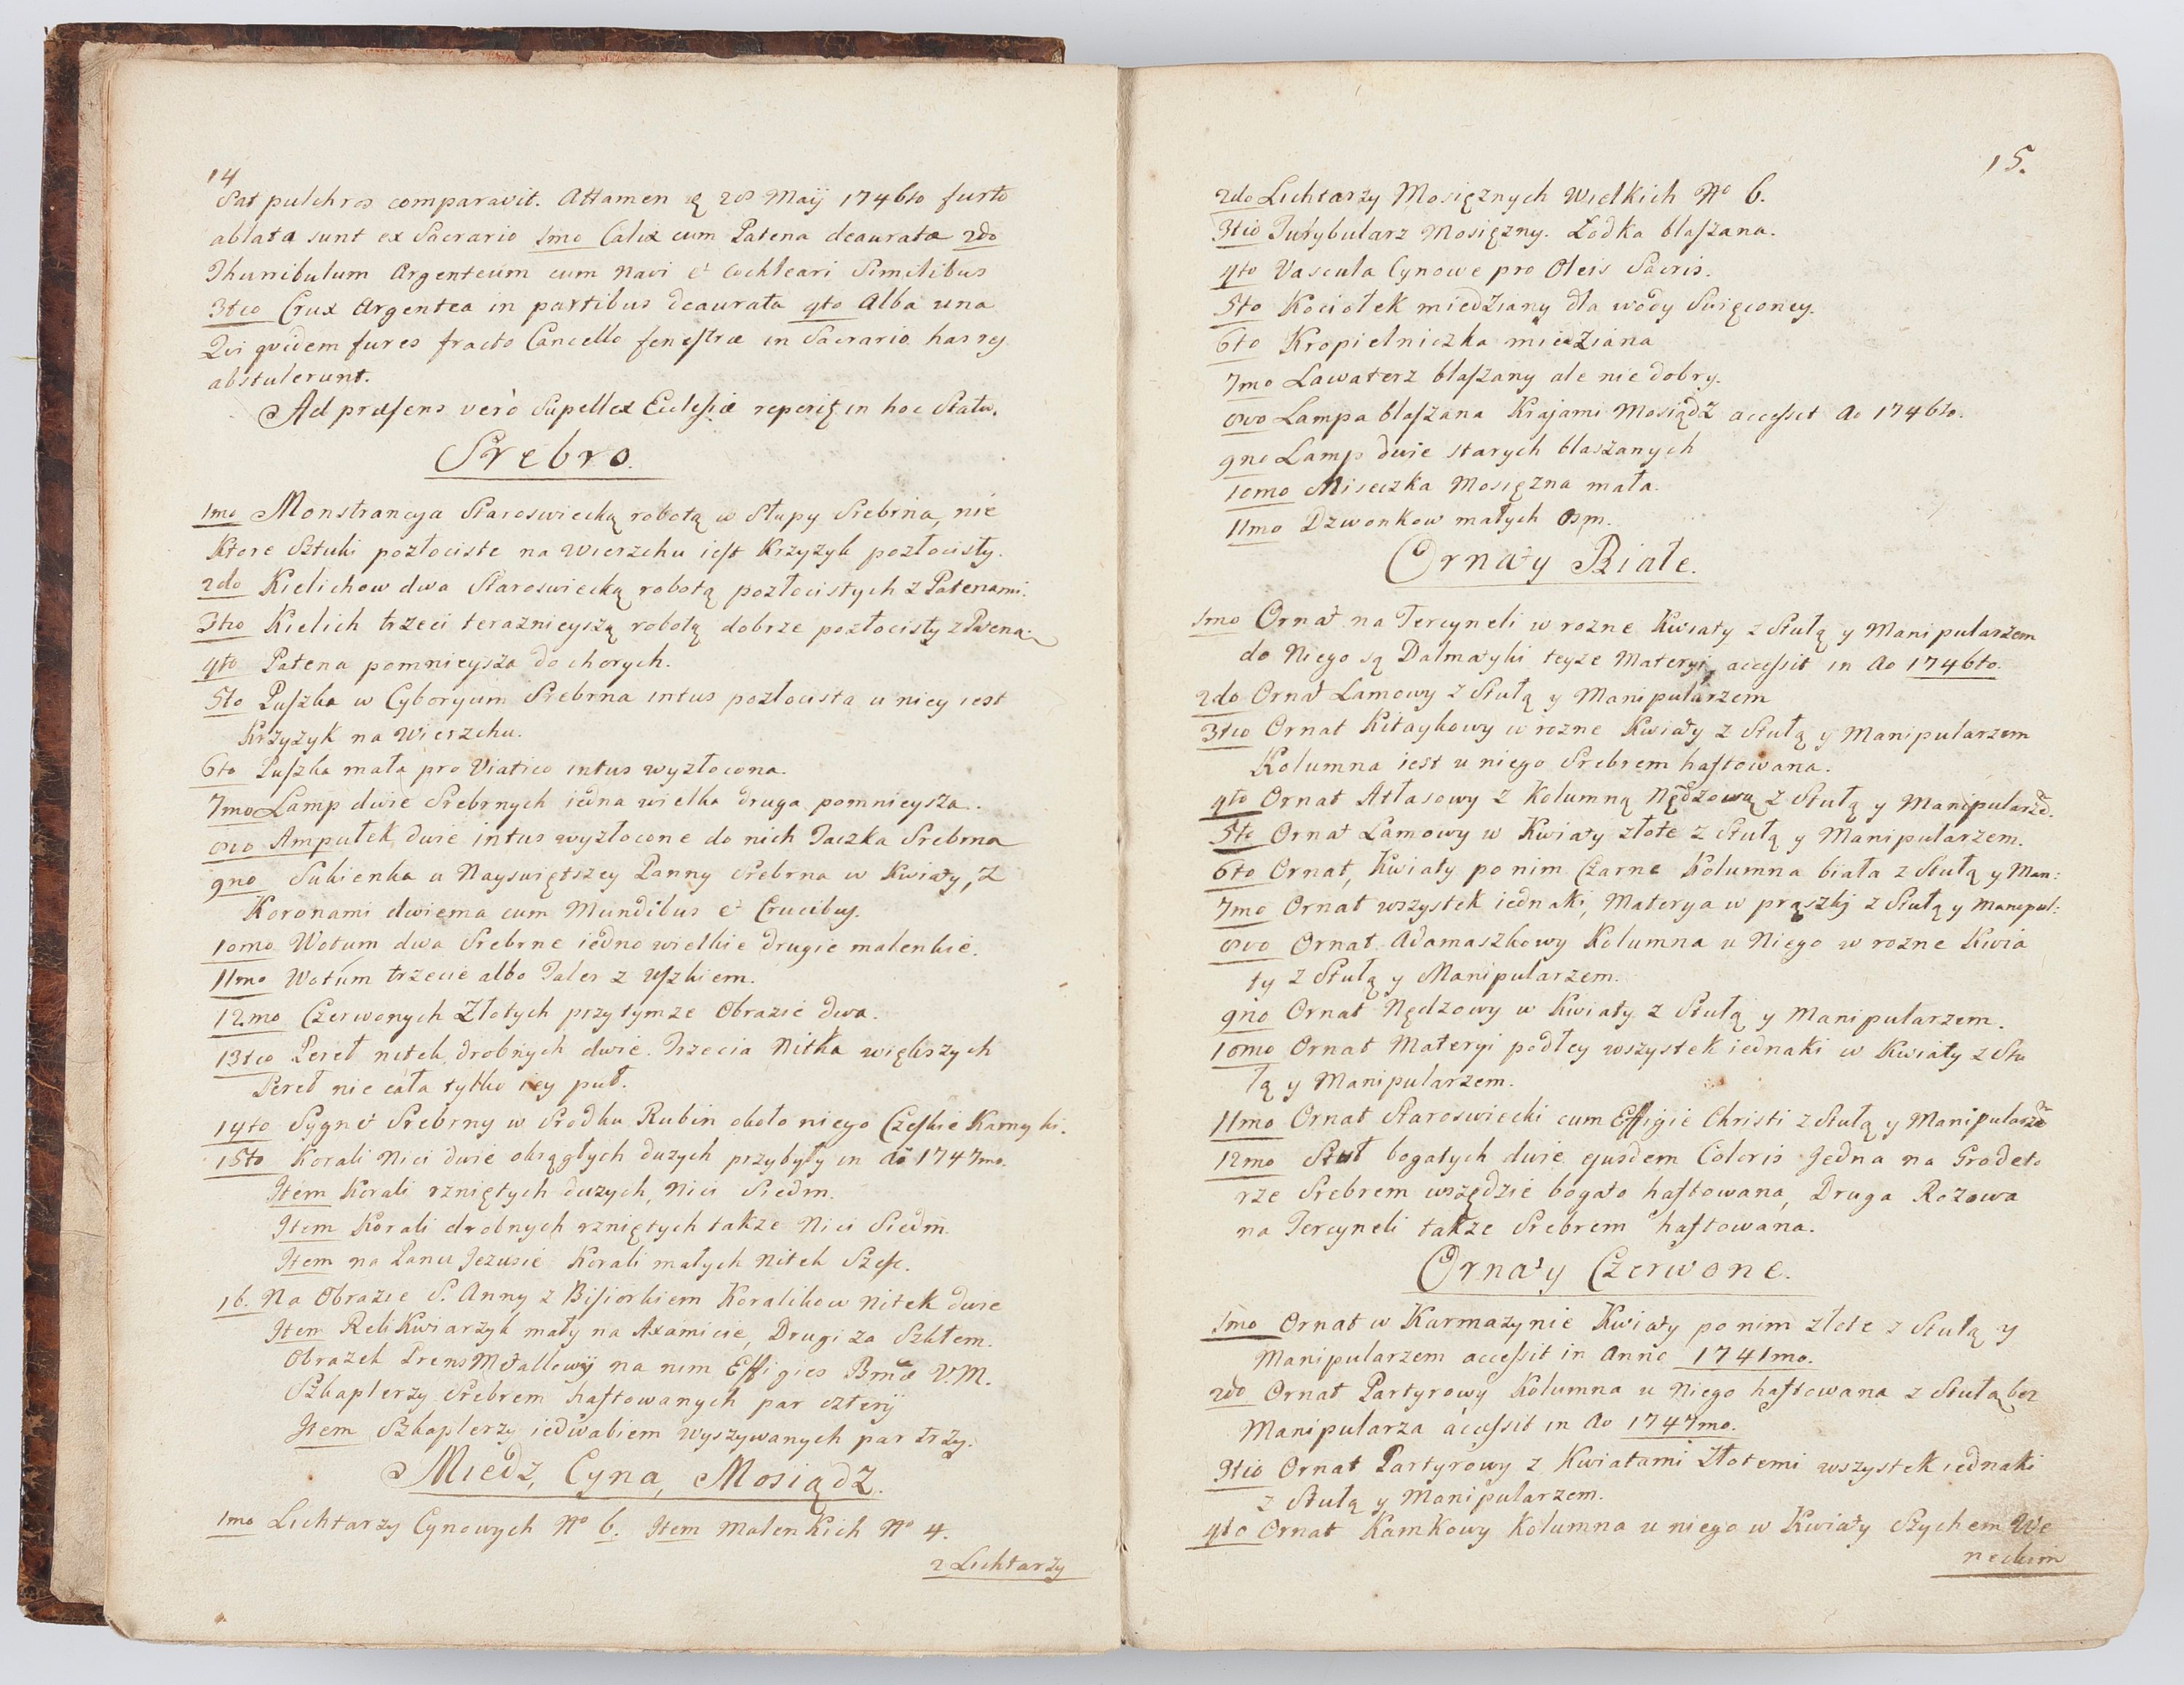 14
Sat pulchros comparavit. Attamen 28 Maij 1746to furto
ablata sunt ex Sacrario 1mo Calix cum Patena deaurata 2do
Thuribulum Argenteum cum Navi et Cochleari Similibus
3tio Crux Argentea in partibus deaurata 4to Alba una
Qui quidem fures fracto Cancello fenestræ in Sacrario has res
abstulerunt.
Ad præsens verò Supellex Ecclesiæ in hoc Statu.
Srebro.
1mo Monstrancya Staroswiecką robotą w Słupy Srebrna, nie
ktore Sztuki pozłociste na Wierzchu iest Krzyzyk pozłocisty.
2do Kielichow dwa Staroswiecką robotą pozłocistych z Patenami.
3tio Kielich trzeci teraznieyszą robotą dobrze pozłocisty z Pateną.
4to Patena pomnieysza do chorych.
5to Puszka w Cyboryum Srebrna intus pozłocista u niey iest
Krzyzyk na Wierzchu.
6to Puszka mała pro Viatico intus wyzłocona.
7mo Lamp dwie Srebrnych iedna wielka druga pomnieysza.
8vo Ampułek dwie intus wyzłocone do nich Taczka Srebrna
9no Sukienka u Nayswiętszey Panny Srebrna w Kwiaty, z
Koronami dwiema cum Mundibus et Crucibus.
10mo Wotum dwa Srebrne iedno wielkie drugie malenkie.
11mo Wotum trzecie albo Taler z Uszkiem.
12mo Czerwonych Złotych przytymze Obrazie dwa.
13tio Pereł nitek drobnych dwie. Trzecia Nitka większych
Pereł nie cała tylko iey puł.
14to Sygnet Srebrny w Srodku Rubin około niego Czeskie Kamyki.
15to Korali Nici dwie okrągłych duzych przybyły in ao 1747mo.
Item Korali rzniętych duzych, Nici Siedm.
Item Korali drobnych rzniętych takze Nici Siedm.
Item na Panu Jezusie Korali małych Nitek Szesc.
16. Na Obrazie S. Anny z Bisiorkiem Koralikow Nitek dwie
Item Relikwiarzyk mały na Axamicie, Drugi za Szkłem.
Obrazek na nim Effigies Bmæ V. M.
Szkaplerzy Srebrem haftowanych par cztery
Item Szkaplerzy iedwabiem wyszywanych par trzy.
Miedz, Cyna, Mosiądz.
1mo Lichtarzy Cynowych No 6. Item Malenkich No 4.
2 Lichtarzy
15.
2do Lichtarzy Mosięznych Wielkich No 6.
3tio Turybularz Mosięzny. Lodka blaszana.
4to Vascula Cynowe pro Oleis Sacris.
5to Kociołek miedziany dla wody Swięconey.
6to Kropielniczka miedziana
7mo Lawaterz blaszany ale nie dobry.
8vo Lampa blaszana Krajami Mosiądz accessit Ao 1746to.
9no Lamp dwie starych blaszanych
10mo Miseczka Mosięzna mała.
11mo Dzwonkow małych Osm.
Ornaty Białe.
1mo Ornat na Tercyneli w rozne Kwiaty z Stułą y Manipularzem
do Niego są Dalmatyki teyze Materyi, accessit in Ao 1746to.
2do Ornat Lamowy z Stułą y Manipularzem
3tio Ornat Kitaykowy w rozne Kwiaty z Stułą y Manipularzem
Kolumna iest u niego Srebrem haftowana.
4to Ornat Atłasowy z Kolumną Nędzową z Stułą y Manipularzē.
5to Ornat Lamowy w Kwiaty złote z Stułą y Manipularzem.
6to Ornat, Kwiaty po nim Czarne Kolumna biała z Stułą y Man:
7mo Ornat wszystek iednaki, Materya w prąszki z Stułą y Manipul:
8vo Ornat Adamaszkowy Kolumna u Niego w rozne Kwia
ty z Stułą y Manipularzem.
9no Ornat Nędzowy w Kwiaty z Stułą y Manipularzem.
10mo Ornat Materyi podłey wszystek iednaki w Kwiaty z Stu
łą y Manipularzem.
11mo Ornat Staroswiecki cum Effigie Christi z Stułą y Manipularzē
12mo Stuł bogatych dwie ejusdem Coloris Jedna na Grodeto
rze Srebrem wszędzie bogato haftowana, Druga Rozowa
na Tercyneli takze Srebrem haftowana.
Ornaty Czerwone.
1mo Ornat w Karmazynie Kwiaty po nim złote z Stułą y
Manipularzem accessit in Anno 1741mo.
2do Ornat Partyrowy Kolumna u Niego haftowana z Stułą bez
Manipularza accessit in Ao 1747mo.
3tio Ornat Partyrowy z Kwiatami Złotemi wszystek iednaki
z Stułą y Manipularzem.
4to Ornat Kamkowy Kolumna u niego w Kwiaty Szychem We
neckim